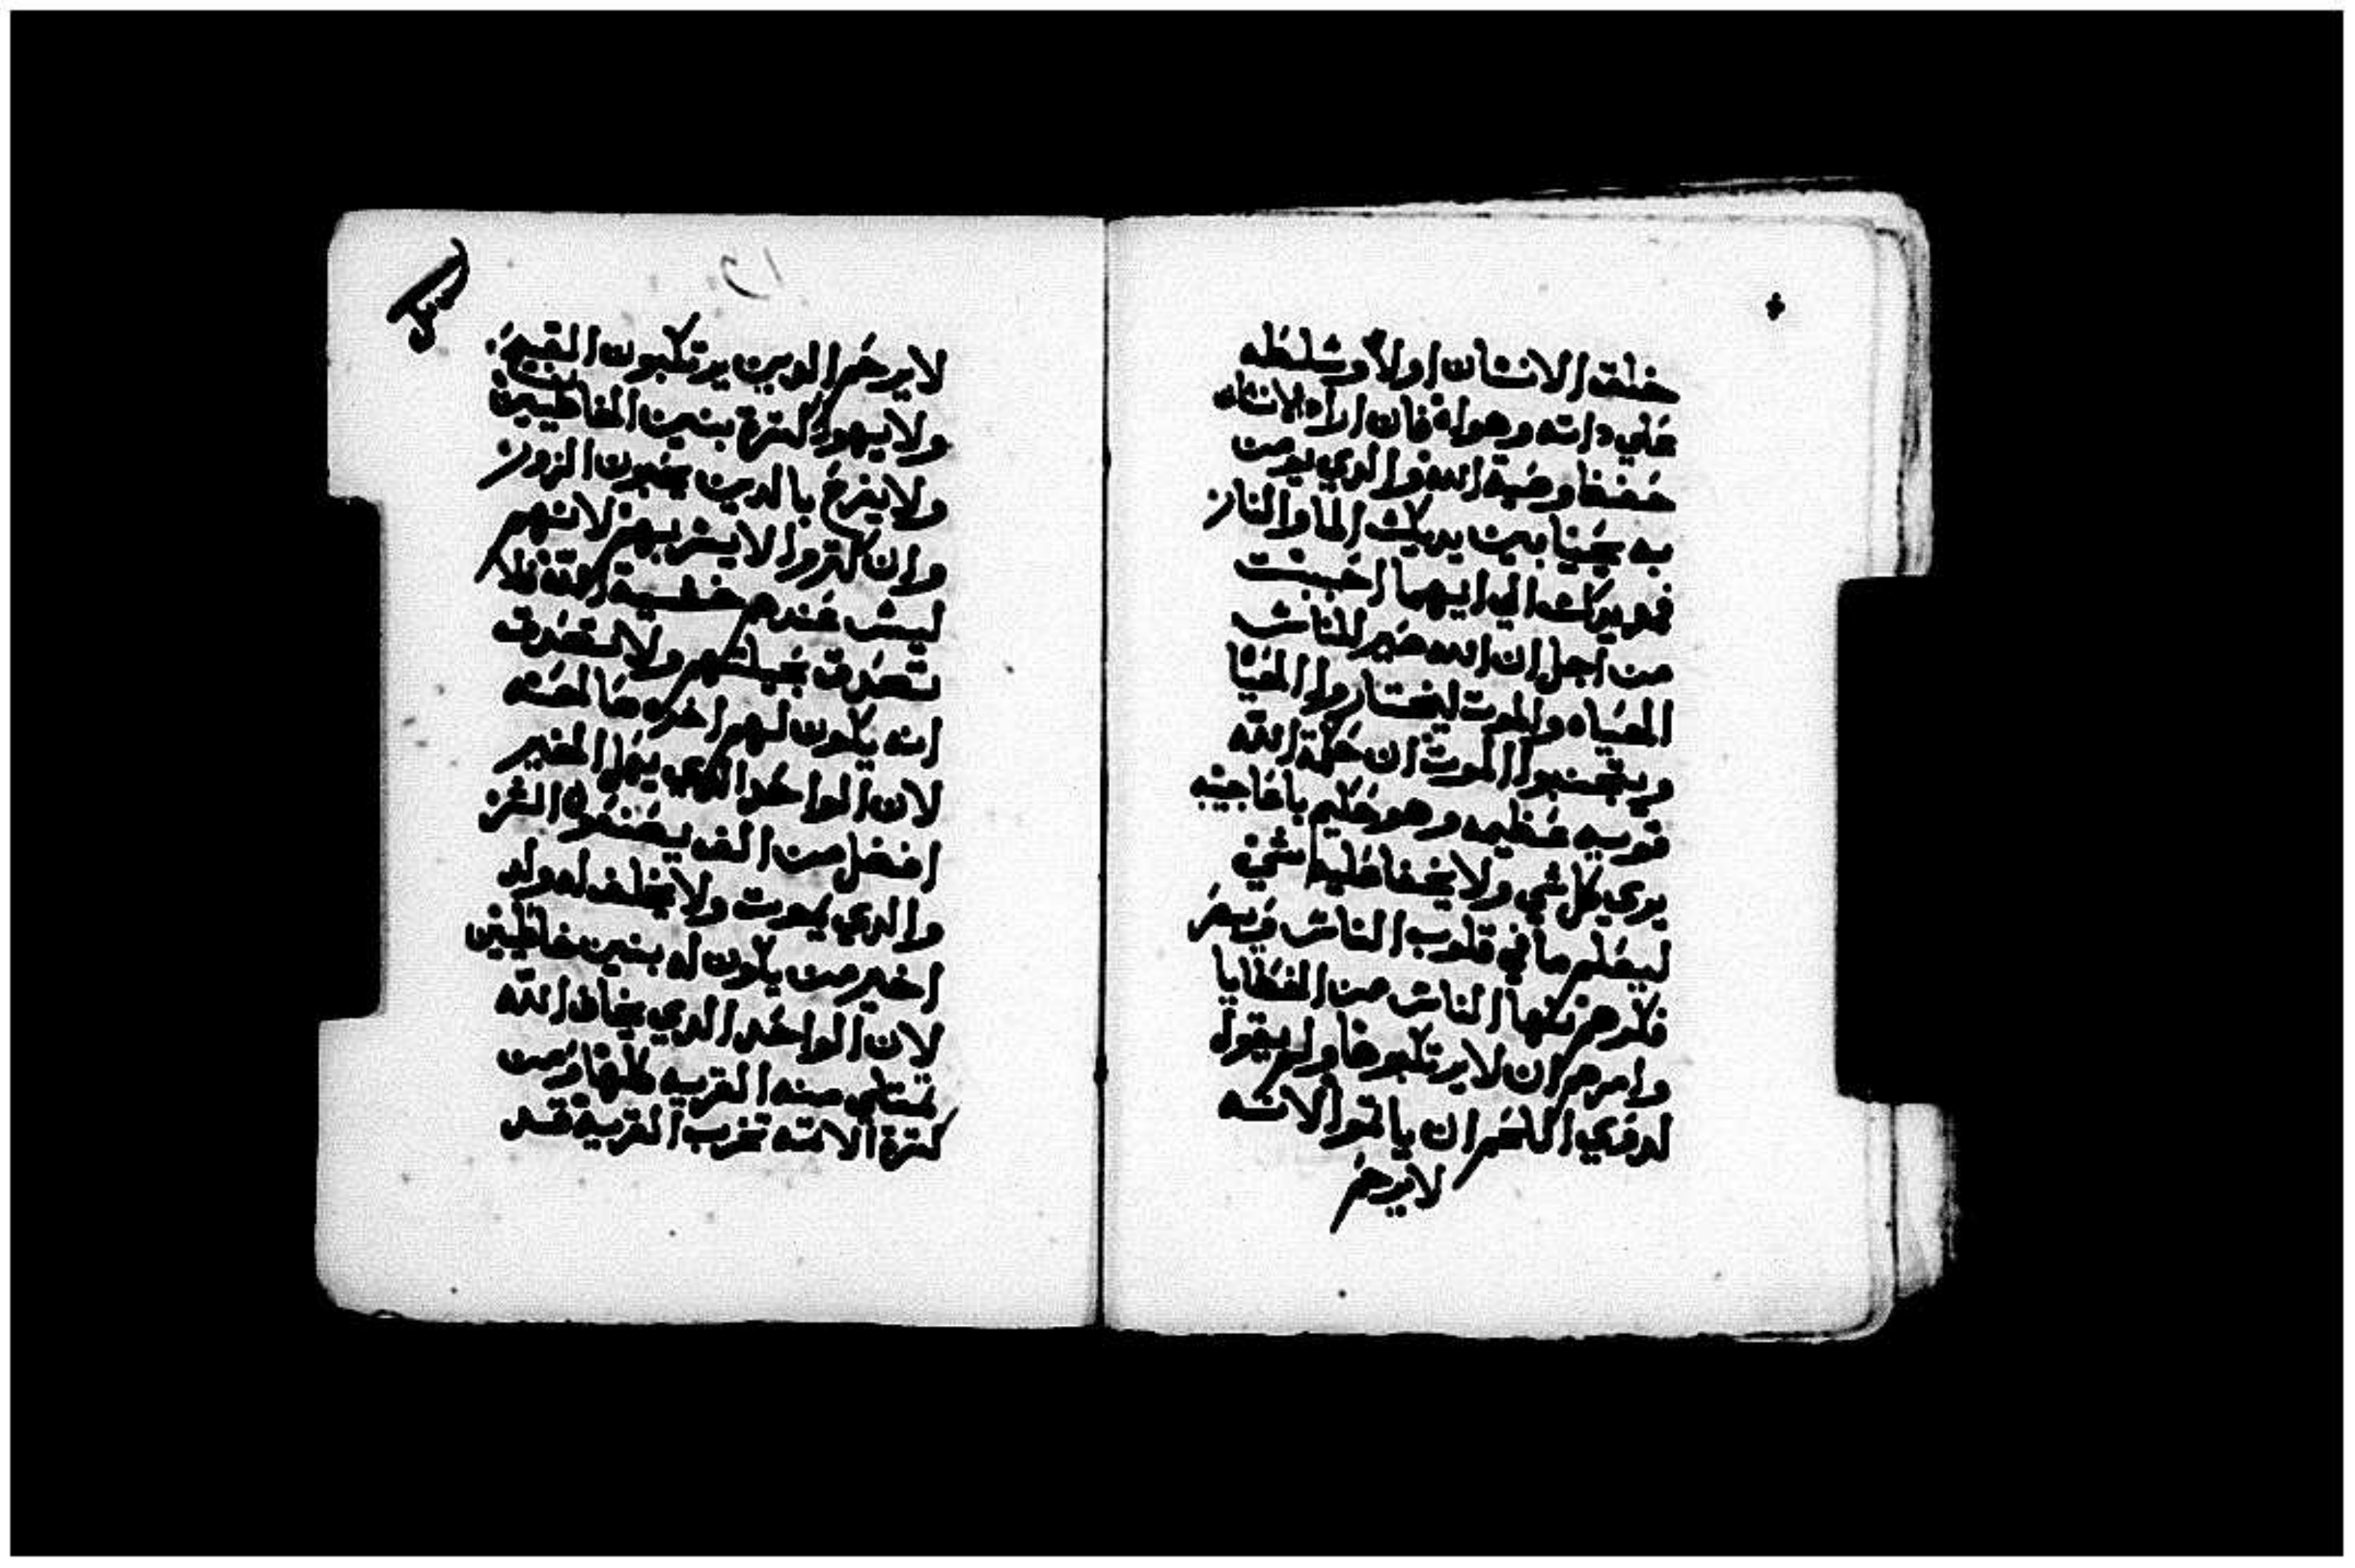 خلق الانسان اولاً وسلطه
علي داته وهواه فان اراد الانسان
حفظ وصية الله والدي يومن
به يحيا بين يديك الما والنار
فمد يدك الي ايهما احببت
من اجل ان الله صير للناس
الحياه والموت ليختاروا الحيا
ويتجنبوا الموت ان حكمة الله
قويه عظيمه وهو حكيم
يري كل شي ولا يخفا عليه شي
ليعلم ما في قلوب الناس
الناس من الخطايا
وامرهم ان لا يرتكبوها ولم يقول
لدوي اللحم ان ياتوا الاته
لا يرحم
لا يرحم الدين يرتكبون القبيح
ولا يهوا كترة بنين الخاطيين
ولا يفرح بالدين يحبون الزور
وان كتروا لا يسر بهم لانهم
ليس عندهم خشية الله فلا
تصدق بحياتهم ولا تصدق
انه يكون لهم اخره صالحه
لان الواحد الدي يعمل الخير
افضل من الف يصنعوا الشر
والدي يموت ولا يخلف له ولد
اخير من يكون له بنين خاطيين
لان الواحد الدي يخاف الله
تمتلي منه القريه كلها ومن
كترة الاتمه تخرب القرية قد